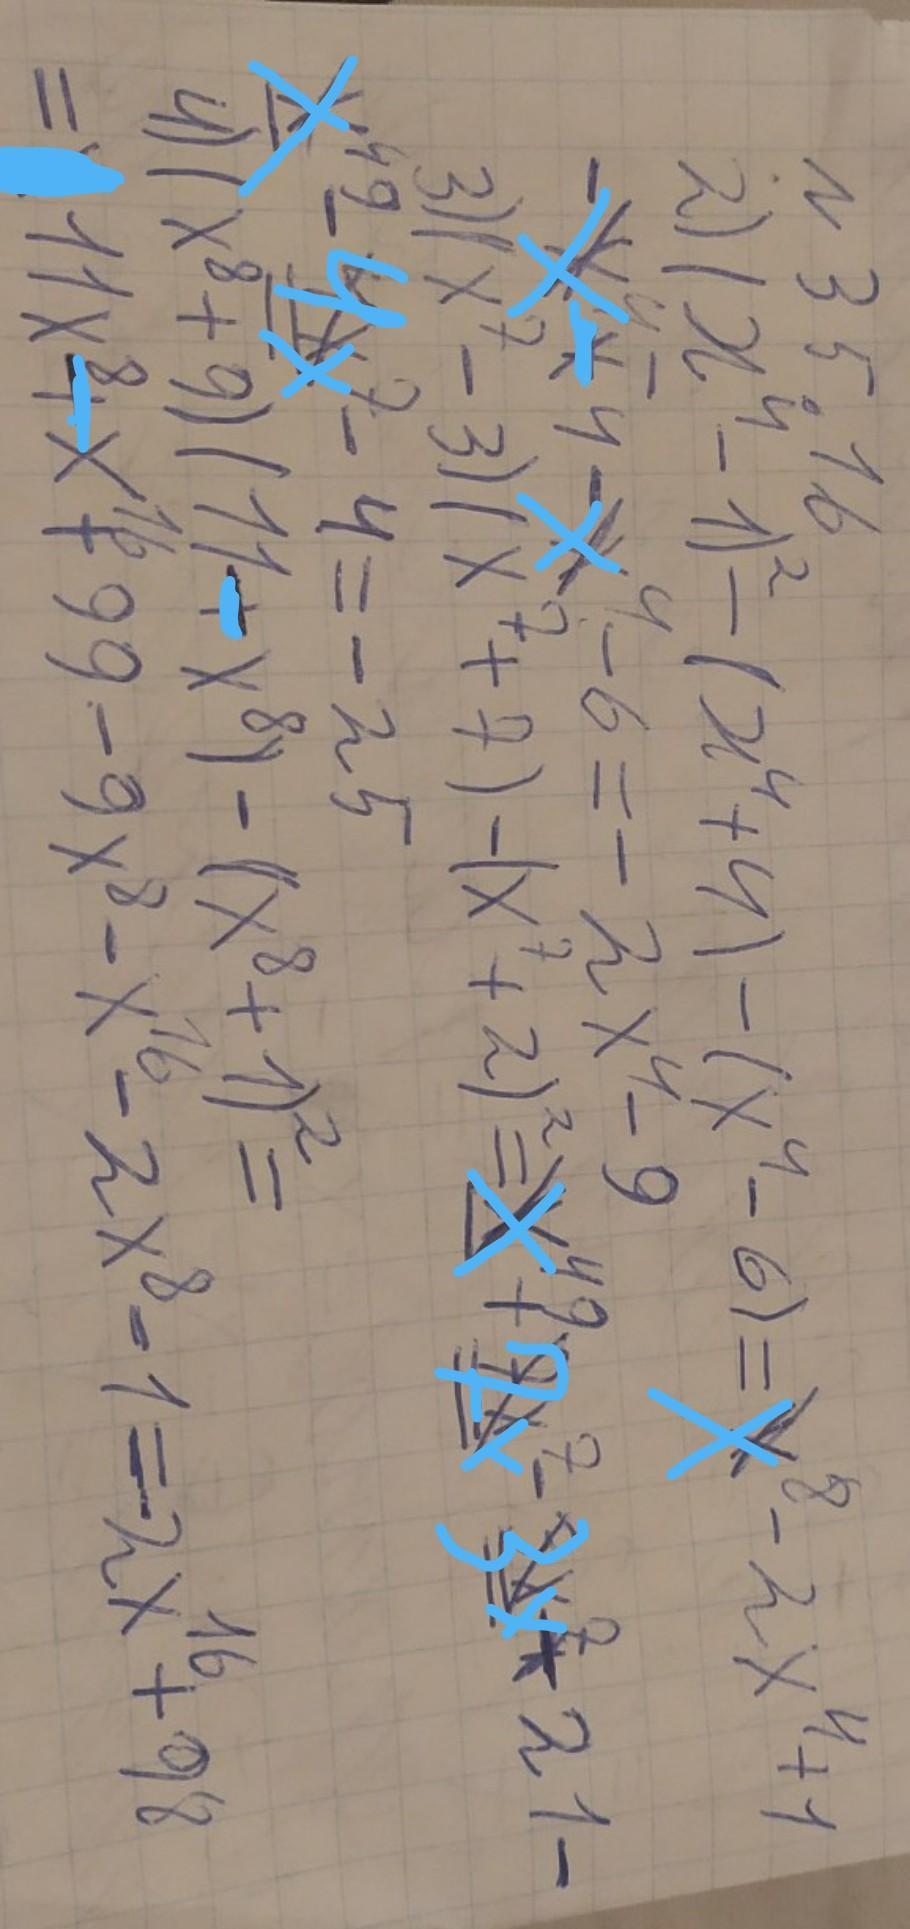 N 35.16
2) (x⁴ - 1)² - (x⁴ + 4) - (x⁴ - 6) = x⁸ - 2x⁴ + 1
- x⁴ - 4 - x⁴ - 6 = - 2x⁴ - 9
3) (x⁷ - 3)(x⁷ + 7) - (x⁷ + 2)² = x⁴⁹ + 7x⁷ - 3x⁷ - 21 -
x⁴⁹ - 4x⁷ - 4 = - 25
4) (x⁸ + 9)(11 - x⁸) - (x⁸ + 1)² =
= 11x⁸ - x¹⁶ + 99 - 9x⁸ - x¹⁶ - 2x⁸ - 1 = - 2x¹⁶ + 98